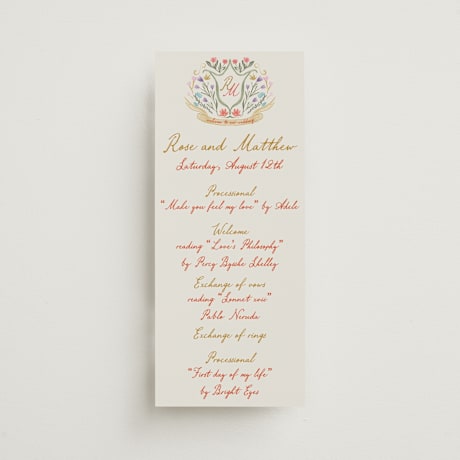 RM
welcome to our wedding
Rose and Matthew
Saturday, August 12th
Processional
"Make you feel my love" by Adele
Welcome
reading "Love's Philosophy"
by Percy Bysshe Shelley
Exchange of vows
reading "Sonnet xvii"
Pablo Neruda
Exchange of rings
Processional
"First day of my life"
by Bright Eyes